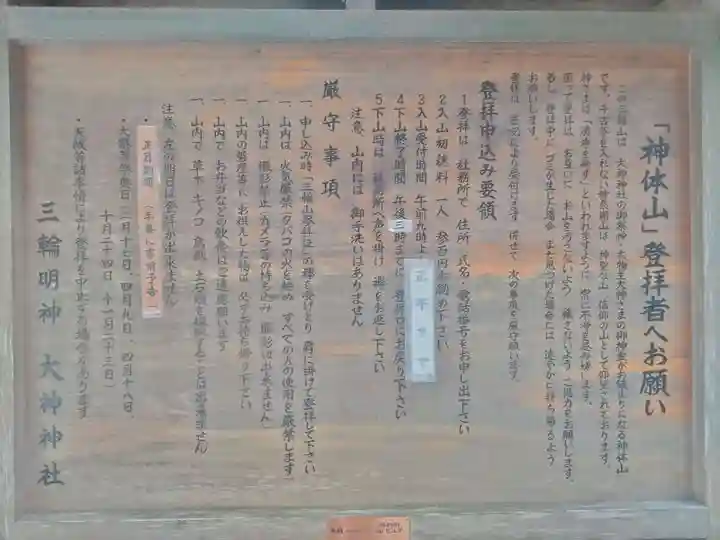 「神体山」登拝者へお願い
この三輪山は 大神神社の御祭神・大物主大神さまの御神霊がお鎮まりになる神体山
です。千古斧を入れない神奈備山は 神聖な山 信仰の山として仰望されております。
お願いします。
登拝は 左記により受付けます 併せて 次の事項を厳守願います。
登拝申込み要領
1 登拝は 社務所で 住所 氏名・電話番号をお申し出下さい
2 入山初穂料 一人 参百円お納め下さい
3 入山受付時間 午前九時より 正午まで
4 下山終了時間 午後三時までに 登拝口にお戻り下さい
5 下山時は 社務所へ声を掛け 襷をお返し下さい
注意 山内には 御手洗いはありません
厳守事項
一、申し込み時「三輪山参拝証」の襷を受けとり 肩に掛けて登拝して下さい
一、山内は 火気厳禁(タバコの火を始め すべての火の使用を厳禁します)
一、山内は 撮影禁止(カメラ等の持ち込み 撮影は出来ません)
一、山内の磐座等に お供えした物は 必ずお持ち帰り下さい
一、山内で お弁当などの飲食はご遠慮願います
一、山内で 草木 キノコ 鳥獣 土石類を採取することは出来ません
注意 左の期日は登拝が出来ません
・正月期間
・大祭等祭典日(二月十七日、四月九日、四月十八日、
十月二十四日 十一月二十三日)
・天候等諸事情により登拝を中止する場合があります
三輪明神 大神神社